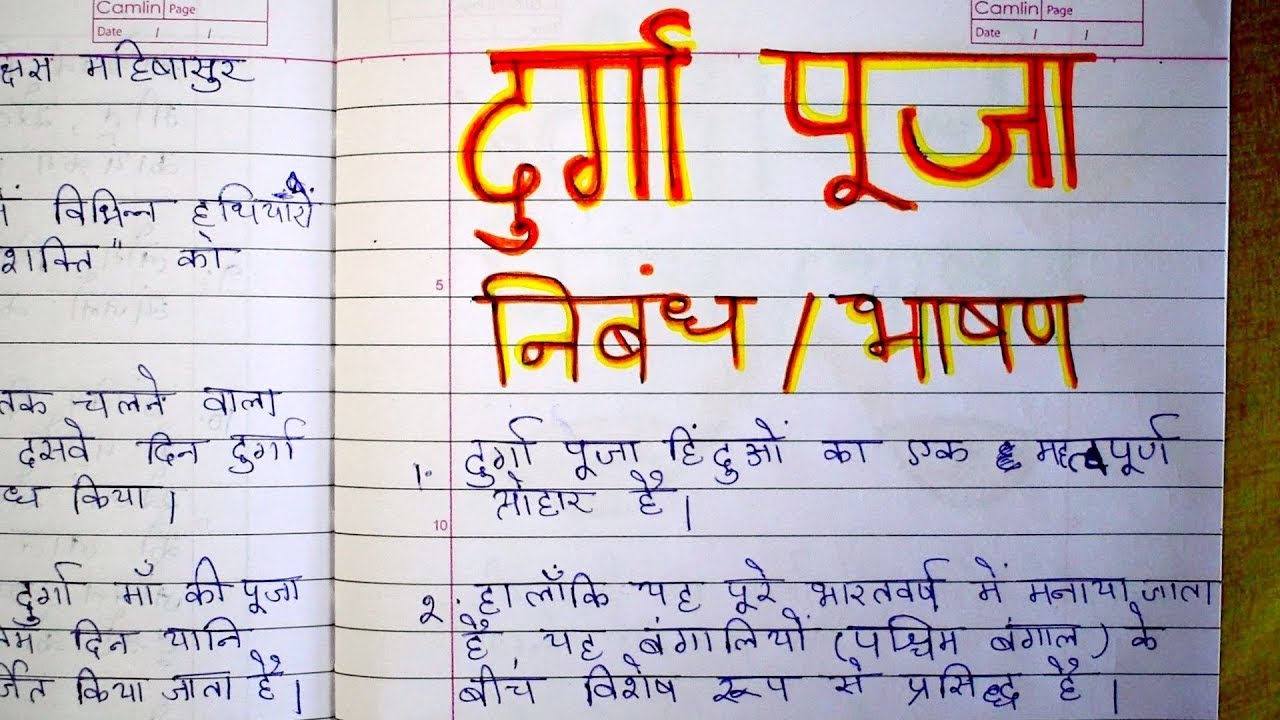 Camlin Page
Date / /
क्षस महिषासुर
में विभिन्न हथियारों
शक्ति" को
तक चलने वाला
दसवे दिन दुर्गा
ध किया।
दुर्गा माँ की पूजा
दिन यानि
र्जित किया जाता है।
Camlin Page
Date / /
दुर्गा पूजा
निबंध / भाषण
5
1. दुर्गा पूजा हिंदुओं का एक महत्वपूर्ण
त्योहार है।
10
२. हालाँकि यह पूरे भारतवर्ष में मनाया जाता
है यह बंगालियों (पश्चिम बंगाल) के
बीच विशेष रूप से प्रसिद्ध है।